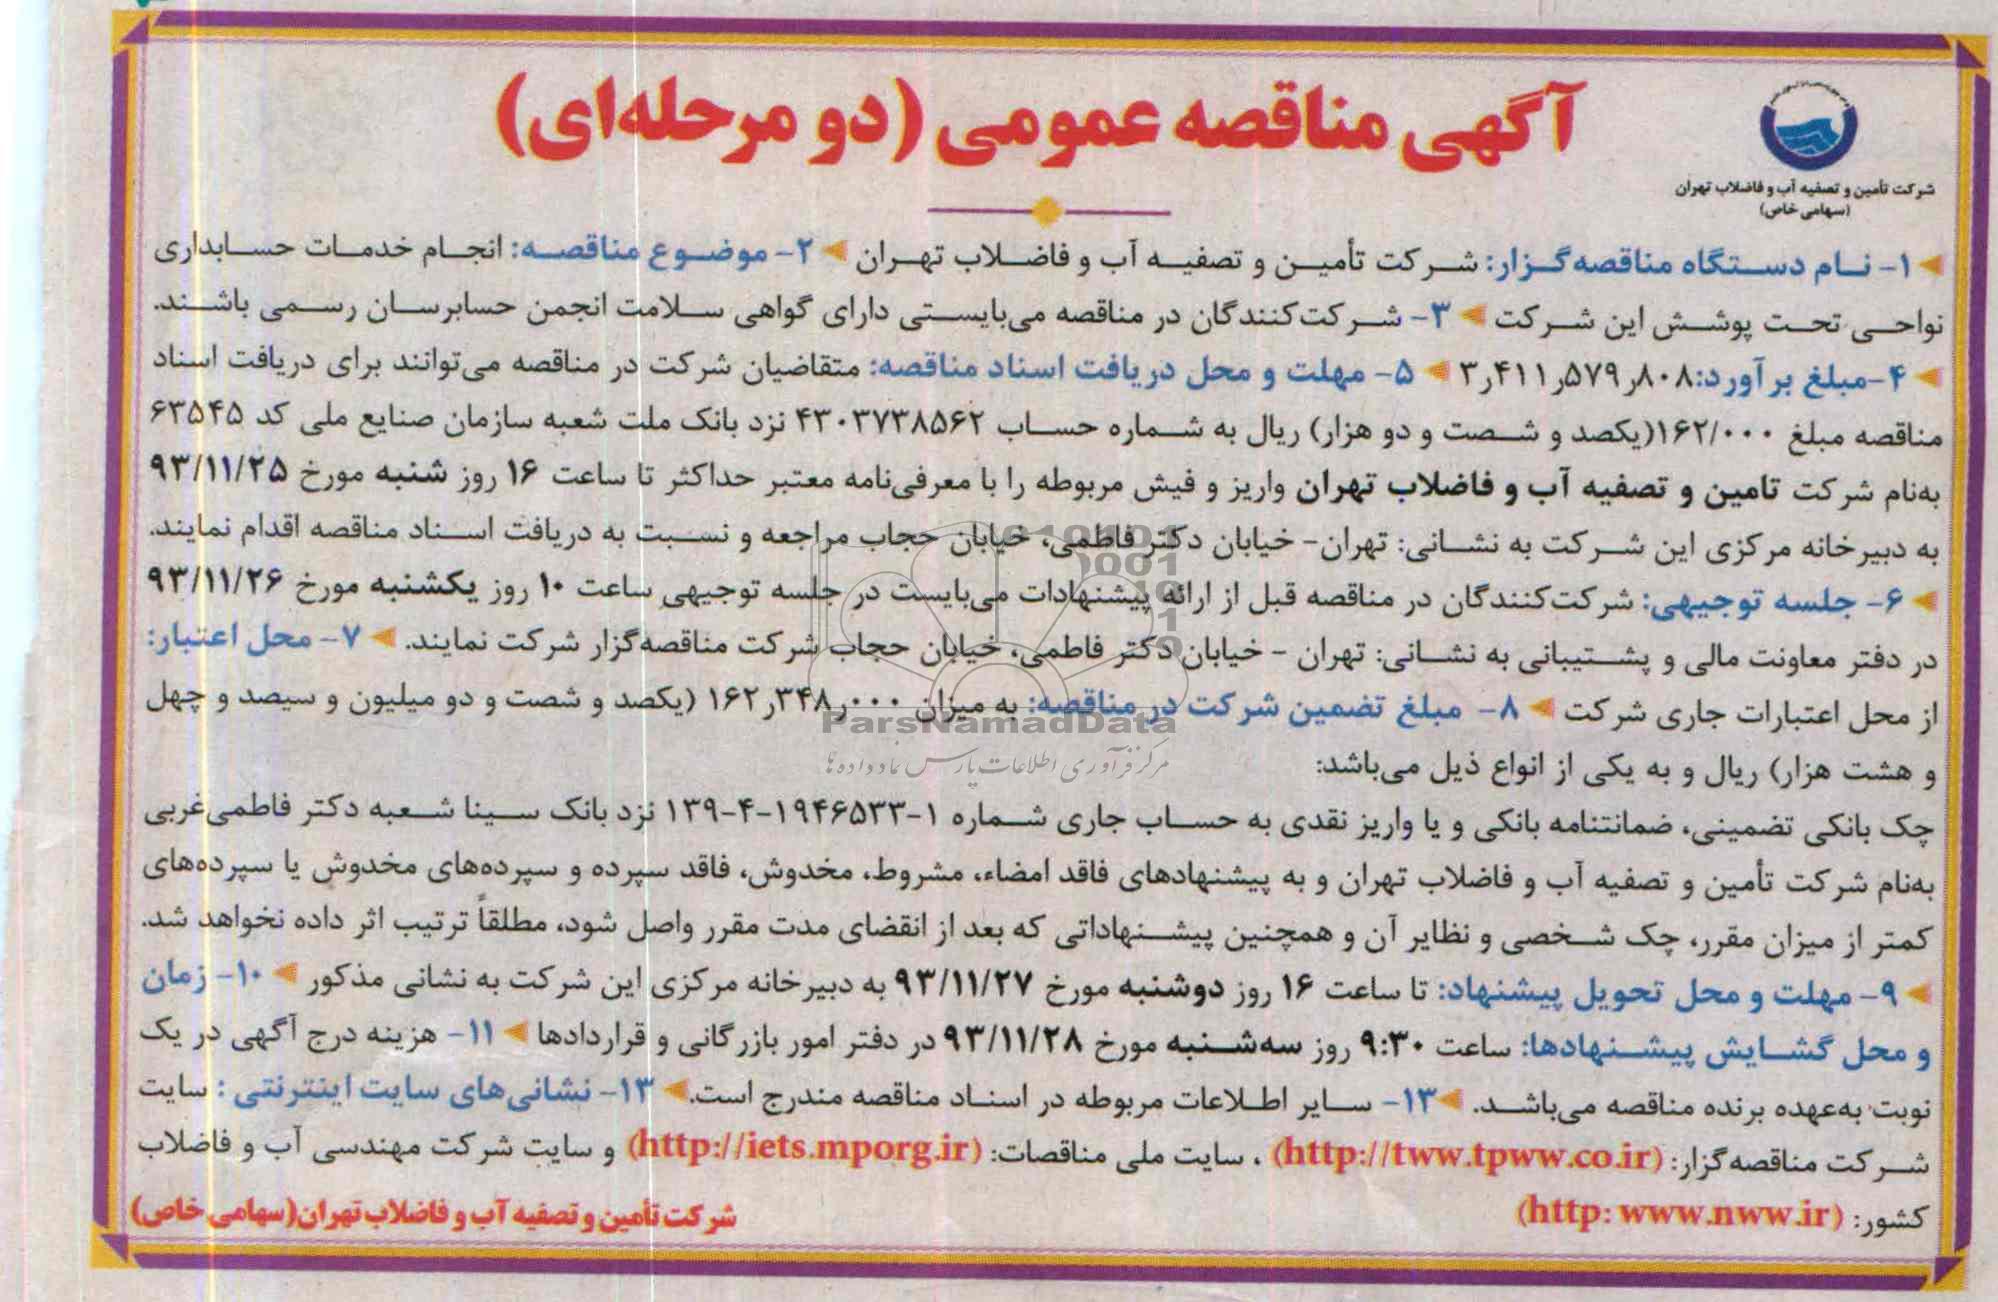 آگهی مناقصه عمومی (دو مرحله‌ای)
شرکت تأمین و تصفیه آب و فاضلاب تهران
(سهامی خاص)
۱- نام دستگاه مناقصه‌گزار: شرکت تأمین و تصفیه آب و فاضلاب تهران ۲- موضوع مناقصه: انجام خدمات حسابداری
نواحی تحت پوشش این شرکت ۳- شرکت‌کنندگان در مناقصه می‌بایستی دارای گواهی سلامت انجمن حسابرسان رسمی باشند.
۴-مبلغ برآورد:۳ر۴۱۱ر۵۷۹ر۸۰۸ ۵- مهلت و محل دریافت اسناد مناقصه: متقاضیان شرکت در مناقصه می‌توانند برای دریافت اسناد
مناقصه مبلغ ۱۶۲/۰۰۰(یکصد و شصت و دو هزار) ریال به شماره حساب ۴۳۰۳۷۳۸۵۶۲ نزد بانک ملت شعبه سازمان صنایع ملی کد ۶۳۵۴۵
به‌نام شرکت تامین و تصفیه آب و فاضلاب تهران واریز و فیش مربوطه را با معرفی‌نامه معتبر حداکثر تا ساعت ۱۶ روز شنبه مورخ ۹۳/۱۱/۲۵
به دبیرخانه مرکزی این شرکت به نشانی: تهران- خیابان دکتر فاطمی، خیابان حجاب مراجعه و نسبت به دریافت اسناد مناقصه اقدام نمایند.
۶- جلسه توجیهی: شرکت‌کنندگان در مناقصه قبل از ارائه پیشنهادات می‌بایست در جلسه توجیهی ساعت ۱۰ روز یکشنبه مورخ ۹۳/۱۱/۲۶
در دفتر معاونت مالی و پشتیبانی به نشانی: تهران - خیابان دکتر فاطمی، خیابان حجاب شرکت مناقصه‌گزار شرکت نمایند. ۷- محل اعتبار:
از محل اعتبارات جاری شرکت ۸- مبلغ تضمین شرکت در مناقصه: به میزان ۱۶۲ر۳۴۸ر۰۰۰ (یکصد و شصت و دو میلیون و سیصد و چهل
و هشت هزار) ریال و به یکی از انواع ذیل می‌باشد:
چک بانکی تضمینی، ضمانتنامه بانکی و یا واریز نقدی به حساب جاری شماره ۱-۱۹۴۶۵۳۳-۴-۱۳۹ نزد بانک سینا شعبه دکتر فاطمی‌غربی
به‌نام شرکت تأمین و تصفیه آب و فاضلاب تهران و به پیشنهادهای فاقد امضاء، مشروط، مخدوش، فاقد سپرده و سپرده‌های مخدوش یا سپرده‌های
کمتر از میزان مقرر، چک شخصی و نظایر آن و همچنین پیشنهاداتی که بعد از انقضای مدت مقرر واصل شود، مطلقاً ترتیب اثر داده نخواهد شد.
۹- مهلت و محل تحویل پیشنهاد: تا ساعت ۱۶ روز دوشنبه مورخ ۹۳/۱۱/۲۷ به دبیرخانه مرکزی این شرکت به نشانی مذکور ۱۰- زمان
و محل گشایش پیشنهادها: ساعت ۹:۳۰ روز سه‌شنبه مورخ ۹۳/۱۱/۲۸ در دفتر امور بازرگانی و قراردادها ۱۱- هزینه درج آگهی در یک
نوبت به‌عهده برنده مناقصه می‌باشد. ۱۳- سایر اطلاعات مربوطه در اسناد مناقصه مندرج است. ۱۳- نشانی‌های سایت اینترنتی : سایت
شرکت مناقصه‌گزار: (http://tww.tpww.co.ir) ، سایت ملی مناقصات: (http://iets.mporg.ir) و سایت شرکت مهندسی آب و فاضلاب
کشور: (http: www.nww.ir)
شرکت تأمین و تصفیه آب و فاضلاب تهران(سهامی خاص)
ParsNamadData
مرکز فرآوری اطلاعات پارس نماد داده‌ها